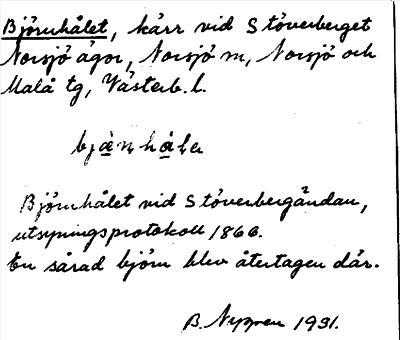 Björnhålet, kärr vid Stöverberget
Norsjö ägor, Norsjö sn, Norsjö och
Malå tg, Västerb. l.
Björnhålet vid Stöverbergändan,
utsyningsprotokoll 1866.
En sårad björn blev återtagen där.
B. Nygren 1931.